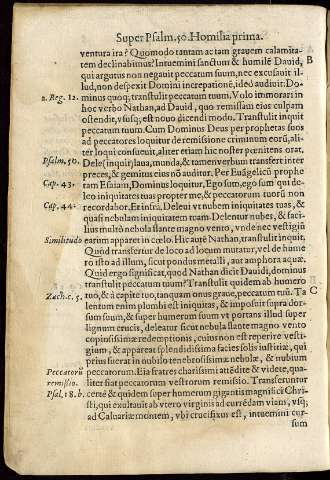 Super Psalm. 50. Homilia prima.
ventura ira? Quomodo tantam ac tam grauem calamita-
tem declinabimus? Intuemini sanctum & humilē Dauid, B
qui argutus non negauit peccatum suum, nec excusauit il-
lud, non despexit Domini increpationē, ideò audiuit. Do-
2. Reg. 12. minus quoq; transtulit peccatum tuum. Volo immorari in
hoc verbo? Nathan, ad Dauid, quo remissam eius culpam
ostendit, vsusq; est nouo dicendi modo. Transtulit inquit
peccatum tuum. Cum Dominus Deus per prophetas suos
ad peccatores loquitur de remissione criminum eorū, ali-
ter loqui consueuit, aliter etiam hic noster pernitens orat.
Psalm. 50. Dele (inquit) laua, munda, & tamen verbum transfert inter
preces, & gemitus eius nō auditur. Per Euāgelicū prophe
Cap. 43. tam Esaiam, Dominus loquitur, Ego sum, ego sum qui de-
leo iniquitates tuas propter me, & peccatorum tuorū non
Cap. 44. recordabor. Et infrà, Deleui vt nubem iniquitates tuas, &
quasi nebulam iniquitatem tuam. Delentur nubes, & faci-
lius multò nebula flante magno vento, vnde nec vestigiū
Similitudo earum apparet in cœlo. Hic autē Nathan, transtulit, inquit.
Quòd transfertur de loco ad locum mutatur, vel de hume
ro isto ad illum, sicut pondus metalli, aut amphora aquæ.
Quid ergo significat, quod Nathan dicit Dauidi, dominus
transtulit peccatum tuum? Transtulit quidem ab humero
Zach. c. 5. tuo, & à capite tuo, tanquam onus graue, peccatum tuū. Ta C
lentum enim plumbi est iniquitas, & imposuit supra dor-
sum suum, & super humerum suum vt portans illud super
lignum crucis, deleatur sicut nebula flante magno vento
copiosissimæ redemptionis, cuius non est reperire vesti-
gium, & appareat splendidissima facies solis iustitiæ, qui
prius fuerat in nubilo tenebrosissimæ nebulæ, & nubium
Peccatorū peccatorum. Eia fratres charissimi attēdite & videte, qua-
remissio. liter fiat peccatorum vestrorum remissio. Transferuntur
Psal. 18. b. certè & quidem super humerum gigantis magnifici Chri-
sti, qui exultauit ab vtero virginis ad currēdam viam, vsq;
ad Caluariæ montem, vbi crucifixus est, intuemini cur-
sum